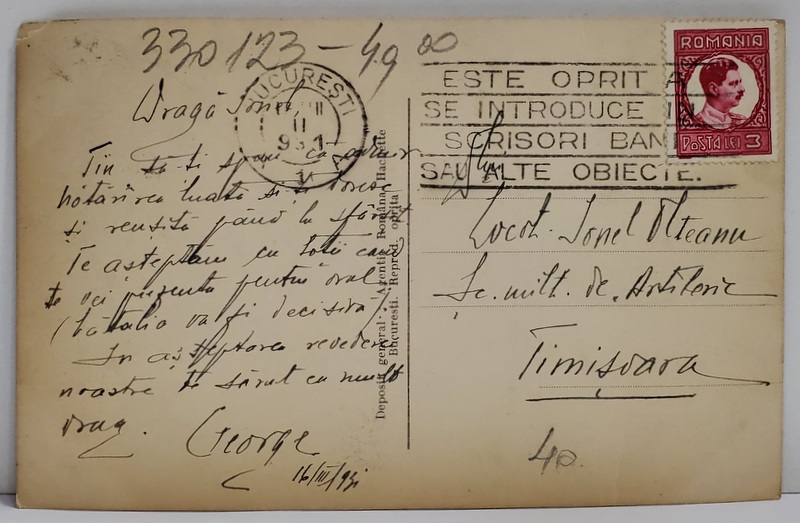 330123-49 00
BUCUREȘTI
II
931
ROMANIA
POSTA LEI 3
ESTE OPRIT A
SE INTRODUCE IN
SCRISORI BANI
SAU ALTE OBIECTE.
Dragă Ionel,
Țin să-ți spun că admir
hotărîrea luată și-ți doresc
și reușită până la sfârșit
Te așteptăm cu toții când
te vei prezenta pentru oral
(bătălia va fi decisivă)
În așteptarea revederei
noastre te sărut cu mult
drag.
George
16/III/931
Depozit general: Agenția Română Hachette
București. Reprod. oprită
Locot. Ionel Olteanu
Șc. milt. de Artilerie
Timișoara
40.